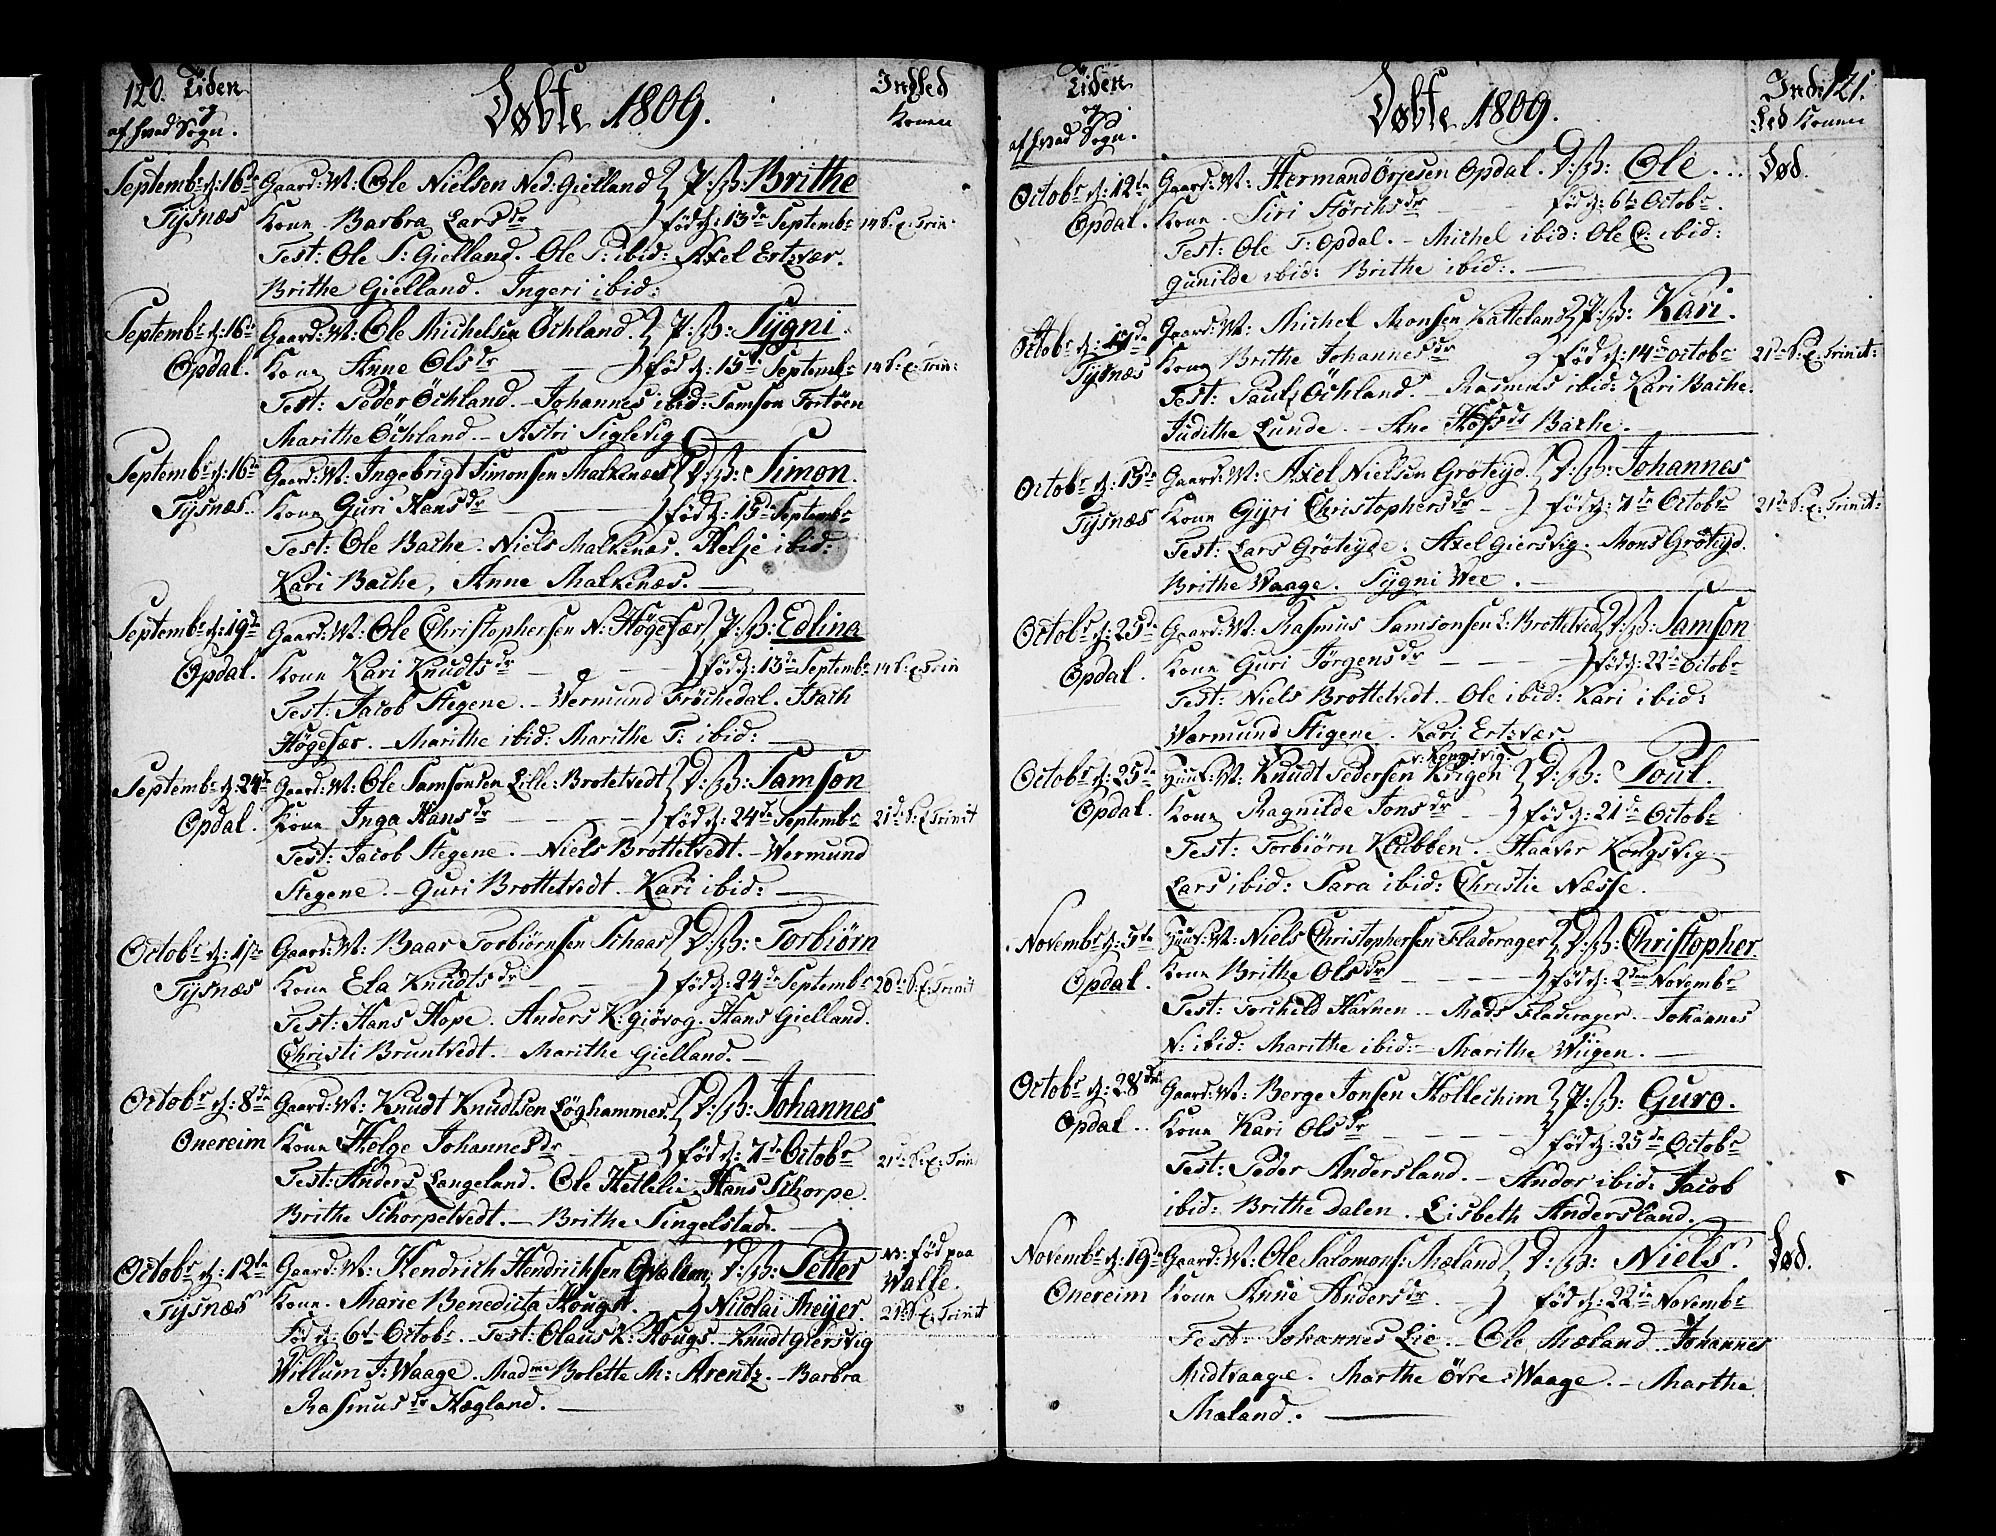 120. Tiden
og
af hvad Sogn.
Døbte 1809.
Indled
Konen
Septembr d: 16de Gaard: M: Ole Nielsen Ned: Gielland } P: B: Brithe
Tysnæs Kone Barbra Larsdr } född: 13de Septembr 14 S. E. Trin:
Test: Ole S: Gielland. Ole T: ibid: Axel Ertzvær.
Brithe Gielland. Ingeri ibid:
Septembr d: 16de Gaard: M: Ole Michelsen Öchland. } P: B: Sygni.
Opdal. Kone Anne Olsdr } född: 15de Septembr 14 S. E. Trin:
Test: Peder Öchland. – Johannes ibid: Samson Tortöen
Marithe Öchland. – Astri Siglevig
Septembr d: 16de Gaard: M: Ingebrigt Simonsen Malkenæs } D: B: Simon.
Tysnæs. Kone Guri Hansdr } född: 15de Septembr
Test: Ole Bache. Niels Malkenæs. Helje ibid:
Kari Bache, Anne Malkenæs. –
Septembr d: 19de Gaard: M: Ole Christophersen N: Högesær } P: B: Edlina
Opdal. Kone Kari Knudtsdr } född: 13de Septembr 14 S. E. Trin
Test: Jacob Stegene. – Wermund Fröchedal. Isach
Högesær. – Marithe ibid: Marithe T: ibid: –
Septembr d: 24de Gaard: M: Ole Samsonsen Lille: Brotetvedt } D: B: Samson
Opdal. Kone Inga Hansdr } född: 24de Septembr 21d: S. E. Trinit
Test: Jacob Stegene. – Niels Brottetvedt. – Wermund
Stegene. – Guri Brottetvedt. Kari ibid: –
Octobr d: 1ste Gaard: M: Baar Torbiörnsen Schaar } D: B: Torbiörn
Tysnæs Kone Ela Knudtsdr } född: 24de Septembr 20d: S. E. Trinit
Test: Hans Hope. Anders K: Giövog. Hans Gielland.
Christi Bruntvedt. – Marithe Gielland. –
Octobr d: 8de Gaard: M: Knudt Knudtsen Löghammer. } D: B: Johannes
Onereim Kone Helge Johannesdr } född: 7de Octobr 21de S. E. Trin
Test: Anders Langeland. Ole Hetlelie. Hans Schorpe.
Brithe Schorpetvedt. – Brithe Singelstad. –
Octobr d: 12te Gaard: M: Hendrich Hendrichsen Gvalem, D: B: Petter NB: föd paa
Tysnæs Kone. Marie Benedicta Hougs. } Nicolai Meijer. Walle.
Föd d: 6te Octobr. Test: Olaus K: Hougs – Knudt Giersvig 21d S. E. Trinit
Willum J: Waage. Madme Bolette M: Arentz. – Barbra
Rasmusdr Hægland. –
Tiden
og
af hvad Sogn.
Døbte 1809.
Indi 121.
led Konen
Octobr d: 12te Gaard: M: Hermand Örjesen Opdal. D: B: Ole... Död.
Opdal. Kone. Siri Störchsdr född: 6te Octobr.
Test: Ole T: Opdal. – Michel ibid: Ole C: ibid:
Gunilde ibid: Brithe ibid: –
Octobr d: 17de Gaard: M: Michel Monsen Katteland } P: B: Kari.
Tysnæs Kone Brithe Johannesdr } född: 14de Octobr 21de S. E. Trinit:
Test: Paul Öchland. – Rasmus ibid: Kari Bache.
Judithe Lunde. – Ane Bache. –
Octobr d: 15de Gaard: M: Axel Nielsen Gröteyd } D: B: Johannes
Tysnæs Kone Gyri Christophersdr } född: 7de Octobr 21de S. E. Trinit:
Test: Lars Gröteyde. Axel Giersvig. Mons Gröteyd.
Brithe Waage. Sygni Wee. –
Octobr d: 25de Gaard: M: Rasmus Samsonsen L: Brottetved D: B: Samson
Opdal. Kone Guri Jörgensdr } född: 22de Octobr
Test: Niels Brottetvedt. Ole ibid: Kari ibid:
Wermund Stigene. Kari Ertzvær.
Octobr d: 25de Huus: M: Knudt Pedersen Krigen v: Kongsvig } D: B: Poul.
Opdal. Kone Ragnilde Jonsdr } född: 21de Octobr
Test: Torbiörn Klubben. Haaver Kongsvig
Lars ibid: Sara ibid: Christie Næsse.
Novembr d: 5te Huus: M: Niels Christophersen Fladerager } D: B: Christopher.
Opdal. Kone Brithe Olsdr } född: 2den Novembr
Test: Torchild Havnen – Mads Fladerager. – Johannes
N: ibid: Marithe ibid: – Marithe Wiigen. –
Octobr d: 28de Gaard: M: Berge Jonsen Hollechim } P: B: Guro.
Opdal.. Kone Kari Olsdr } född: 25de Octobr
Test: Peder Andersland. – Andor ibid: Jacob
ibid: Brithe Dalen. Lisbeth Andersland. –
Novembr d: 19de Gaard: M: Ole Salomons: Mæland } D: B: Niels. Död.
Onereim Kone Anne Andersdr } född: 22de Novembr
Test: Johannes Lie. – Ole Mæland. – Johannes
Midtvaage. Marthe Övre: Waage. – Marthe
Mæland. –